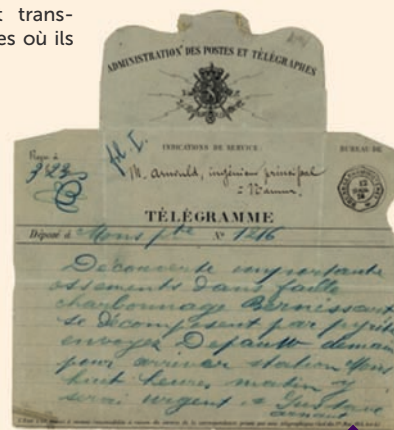 t trans-
es où ils
ADMINISTRATION DES POSTES ET TÉLÉGRAPHES
INDICATIONS DE SERVICE:
BUREAU DE
Reçu à
323
M. Arnould, ingénieur principal
= Namur.
TÉLÉGRAMME
Déposé à Mons N° 1216
Découverte importante
ossements dans faille
charbonnage Bernissart
se décomposent par pyrite
envoyez Depauw demain
pour arriver station Mons
huit heures matin y
serai urgent = Gustave
arnaut